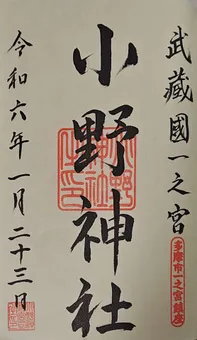 武蔵國一之宮
多摩市一之宮鎮座
小野神社
令和六年一月二十三日